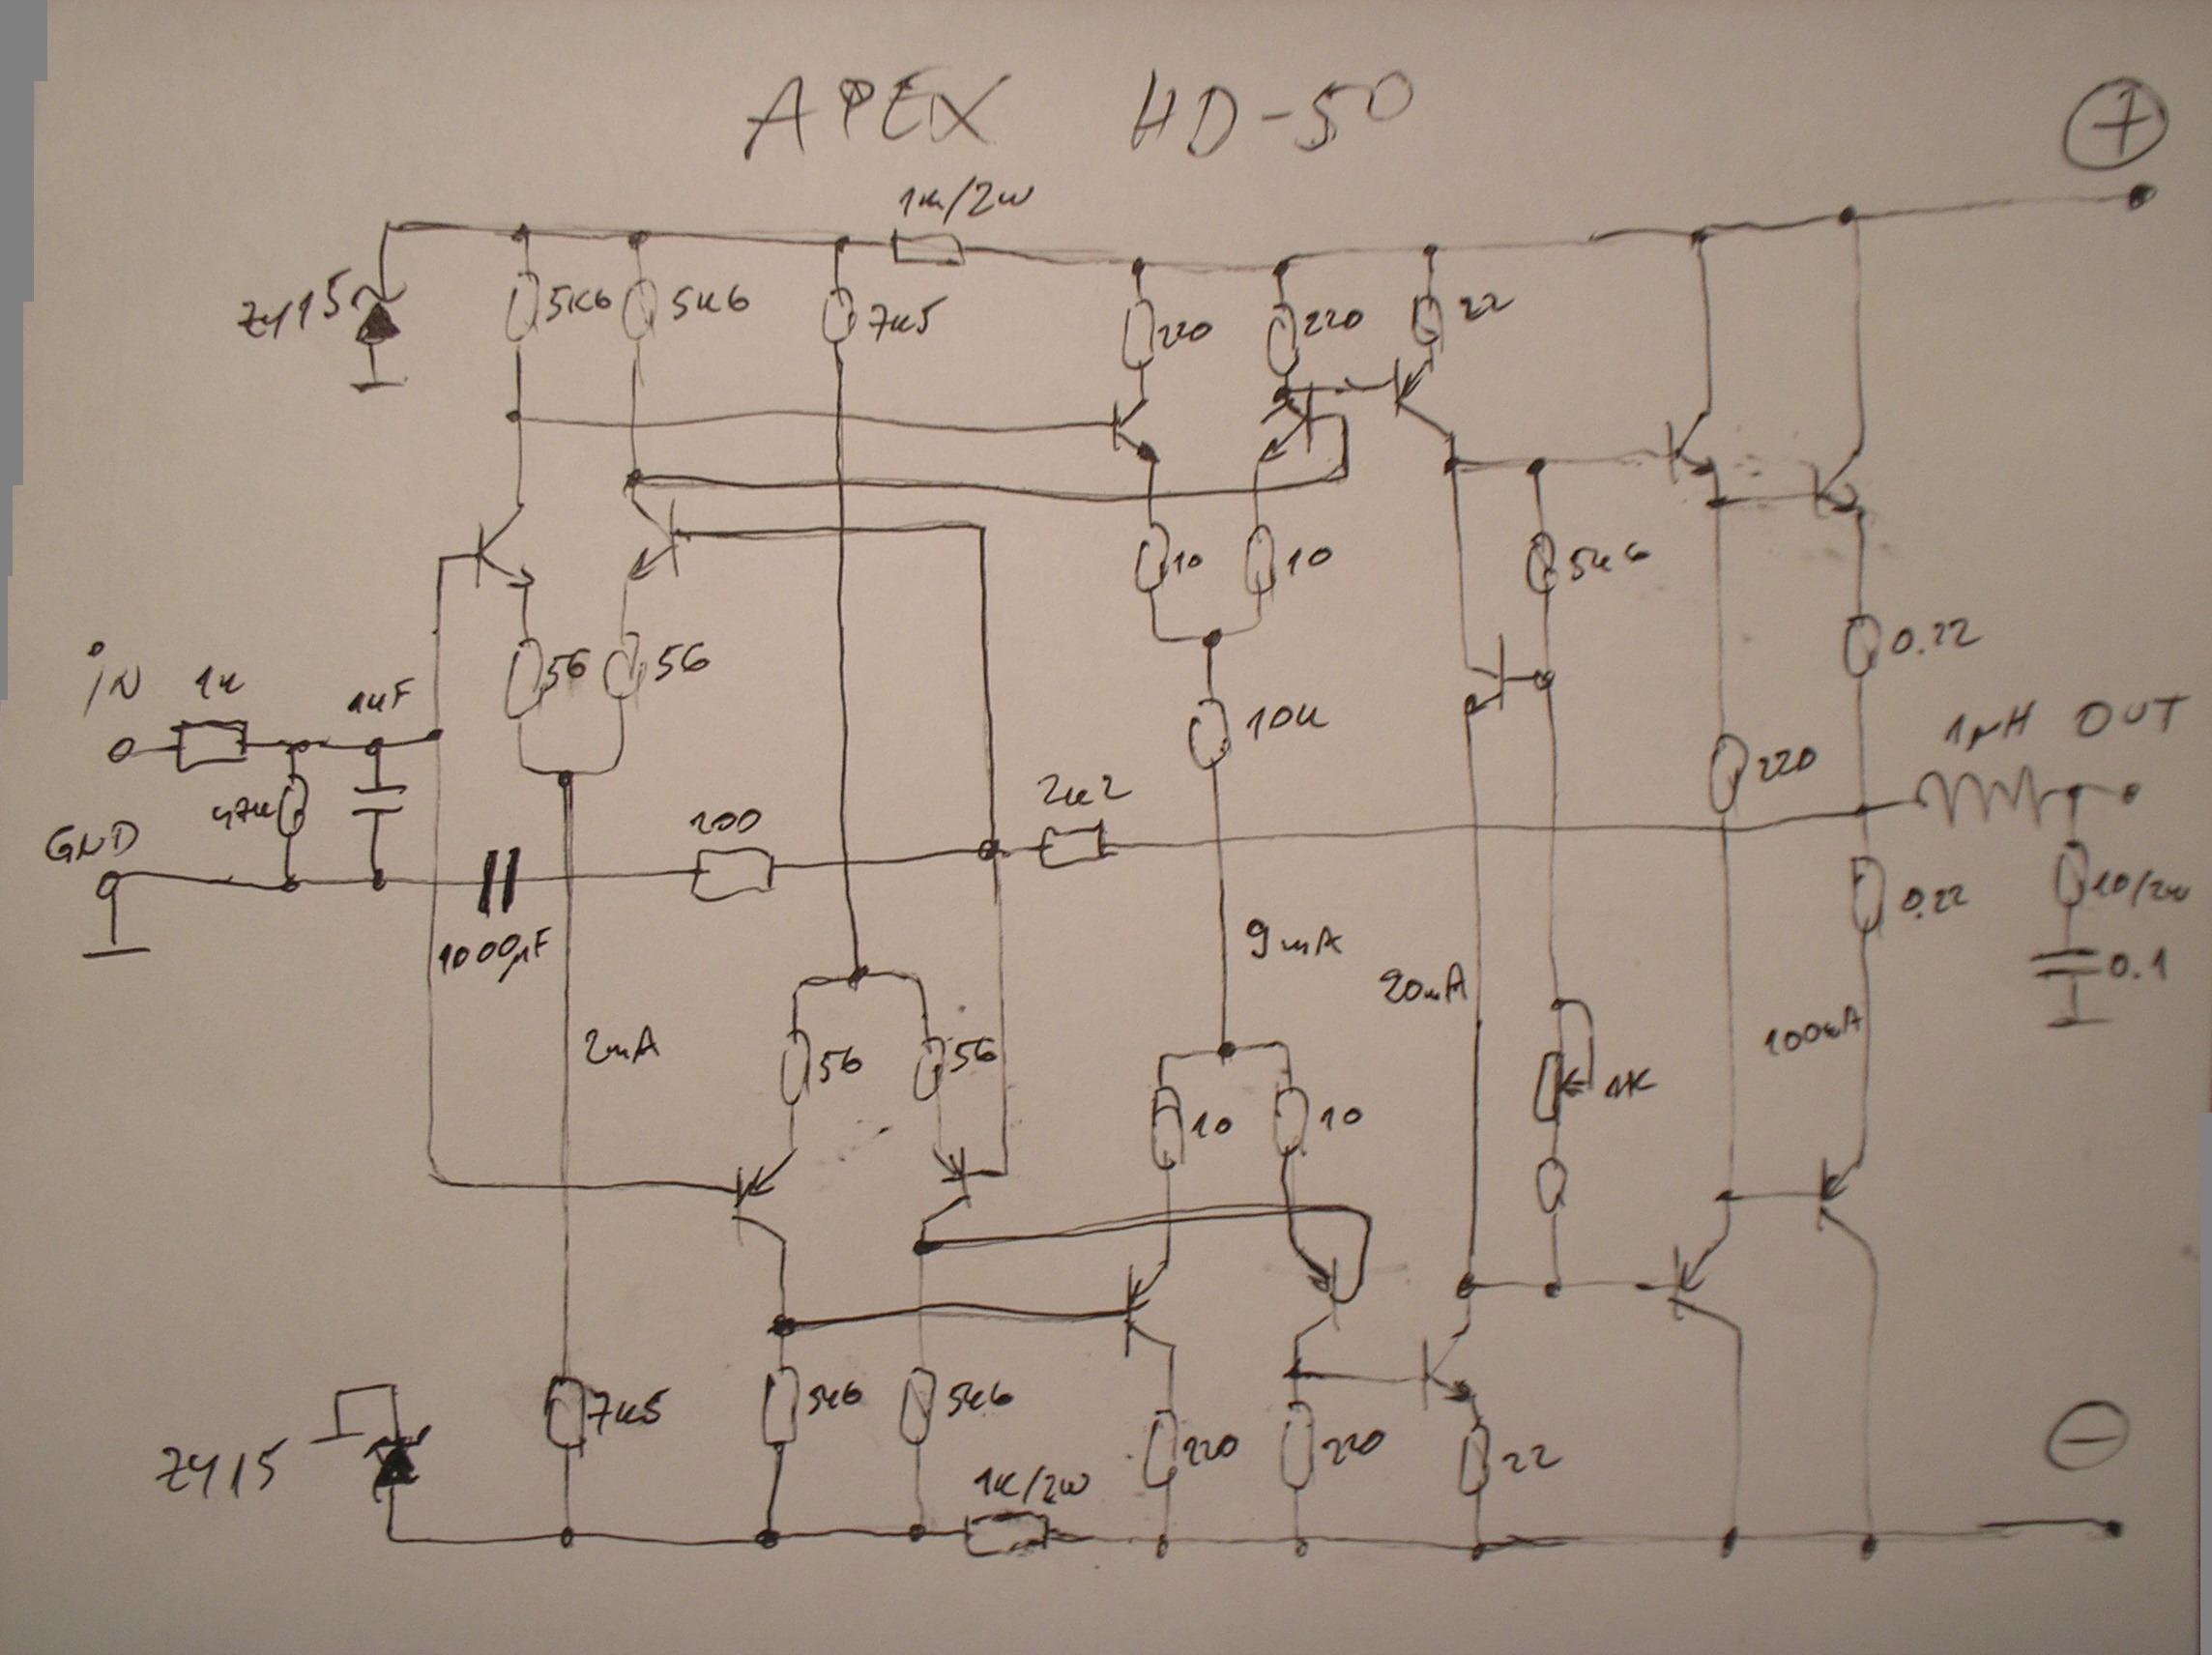 APEX HD-50
+
1K/2W
ZY15
5K6
5K6
7K5
220
220
22
10
10
5K6
56
56
0.22
iN
1K
1nF
10K
220
1µH
OUT
47K
GND
200
2K2
1000µF
9mA
0.22
10/2W
0.1
20mA
2mA
56
56
100mA
10
10
1K
ZY15
7K5
5K6
5K6
220
220
22
1K/2W
−